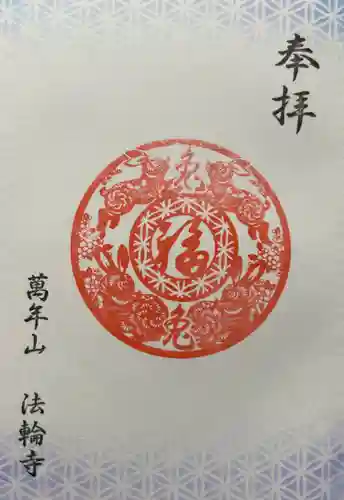 奉拝
兔
福
兔
萬年山 法輪寺